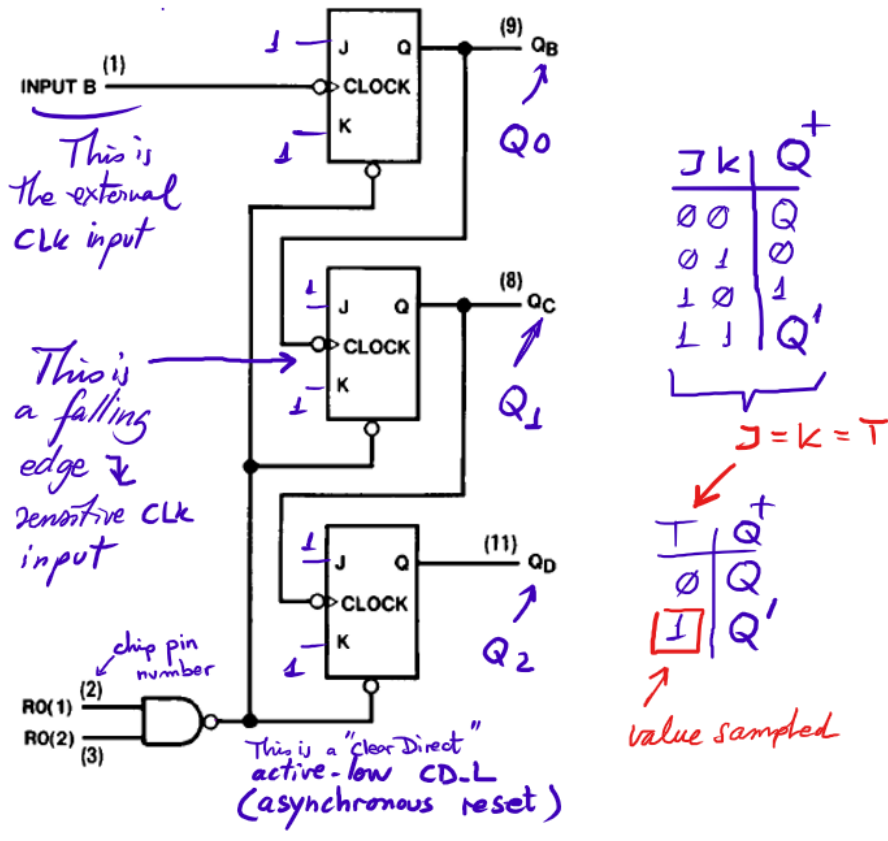 (1)
INPUT B
This is
the external
CLK input
1
J
Q
CLOCK
K
1
(9)
QB
Q0
This is
a falling
edge ↓
sensitive CLK
input
1
J
Q
CLOCK
K
1
(8)
QC
Q1
1
J
Q
CLOCK
K
1
(11)
QD
Q2
chip pin
number
(2)
RO(1)
RO(2)
(3)
This is a "Clear Direct"
active-low CD_L
(asynchronous reset)
J K | Q+
0 0 | Q
0 1 | 0
1 0 | 1
1 1 | Q'
J = K = T
T | Q+
0 | Q
1 | Q'
value sampled